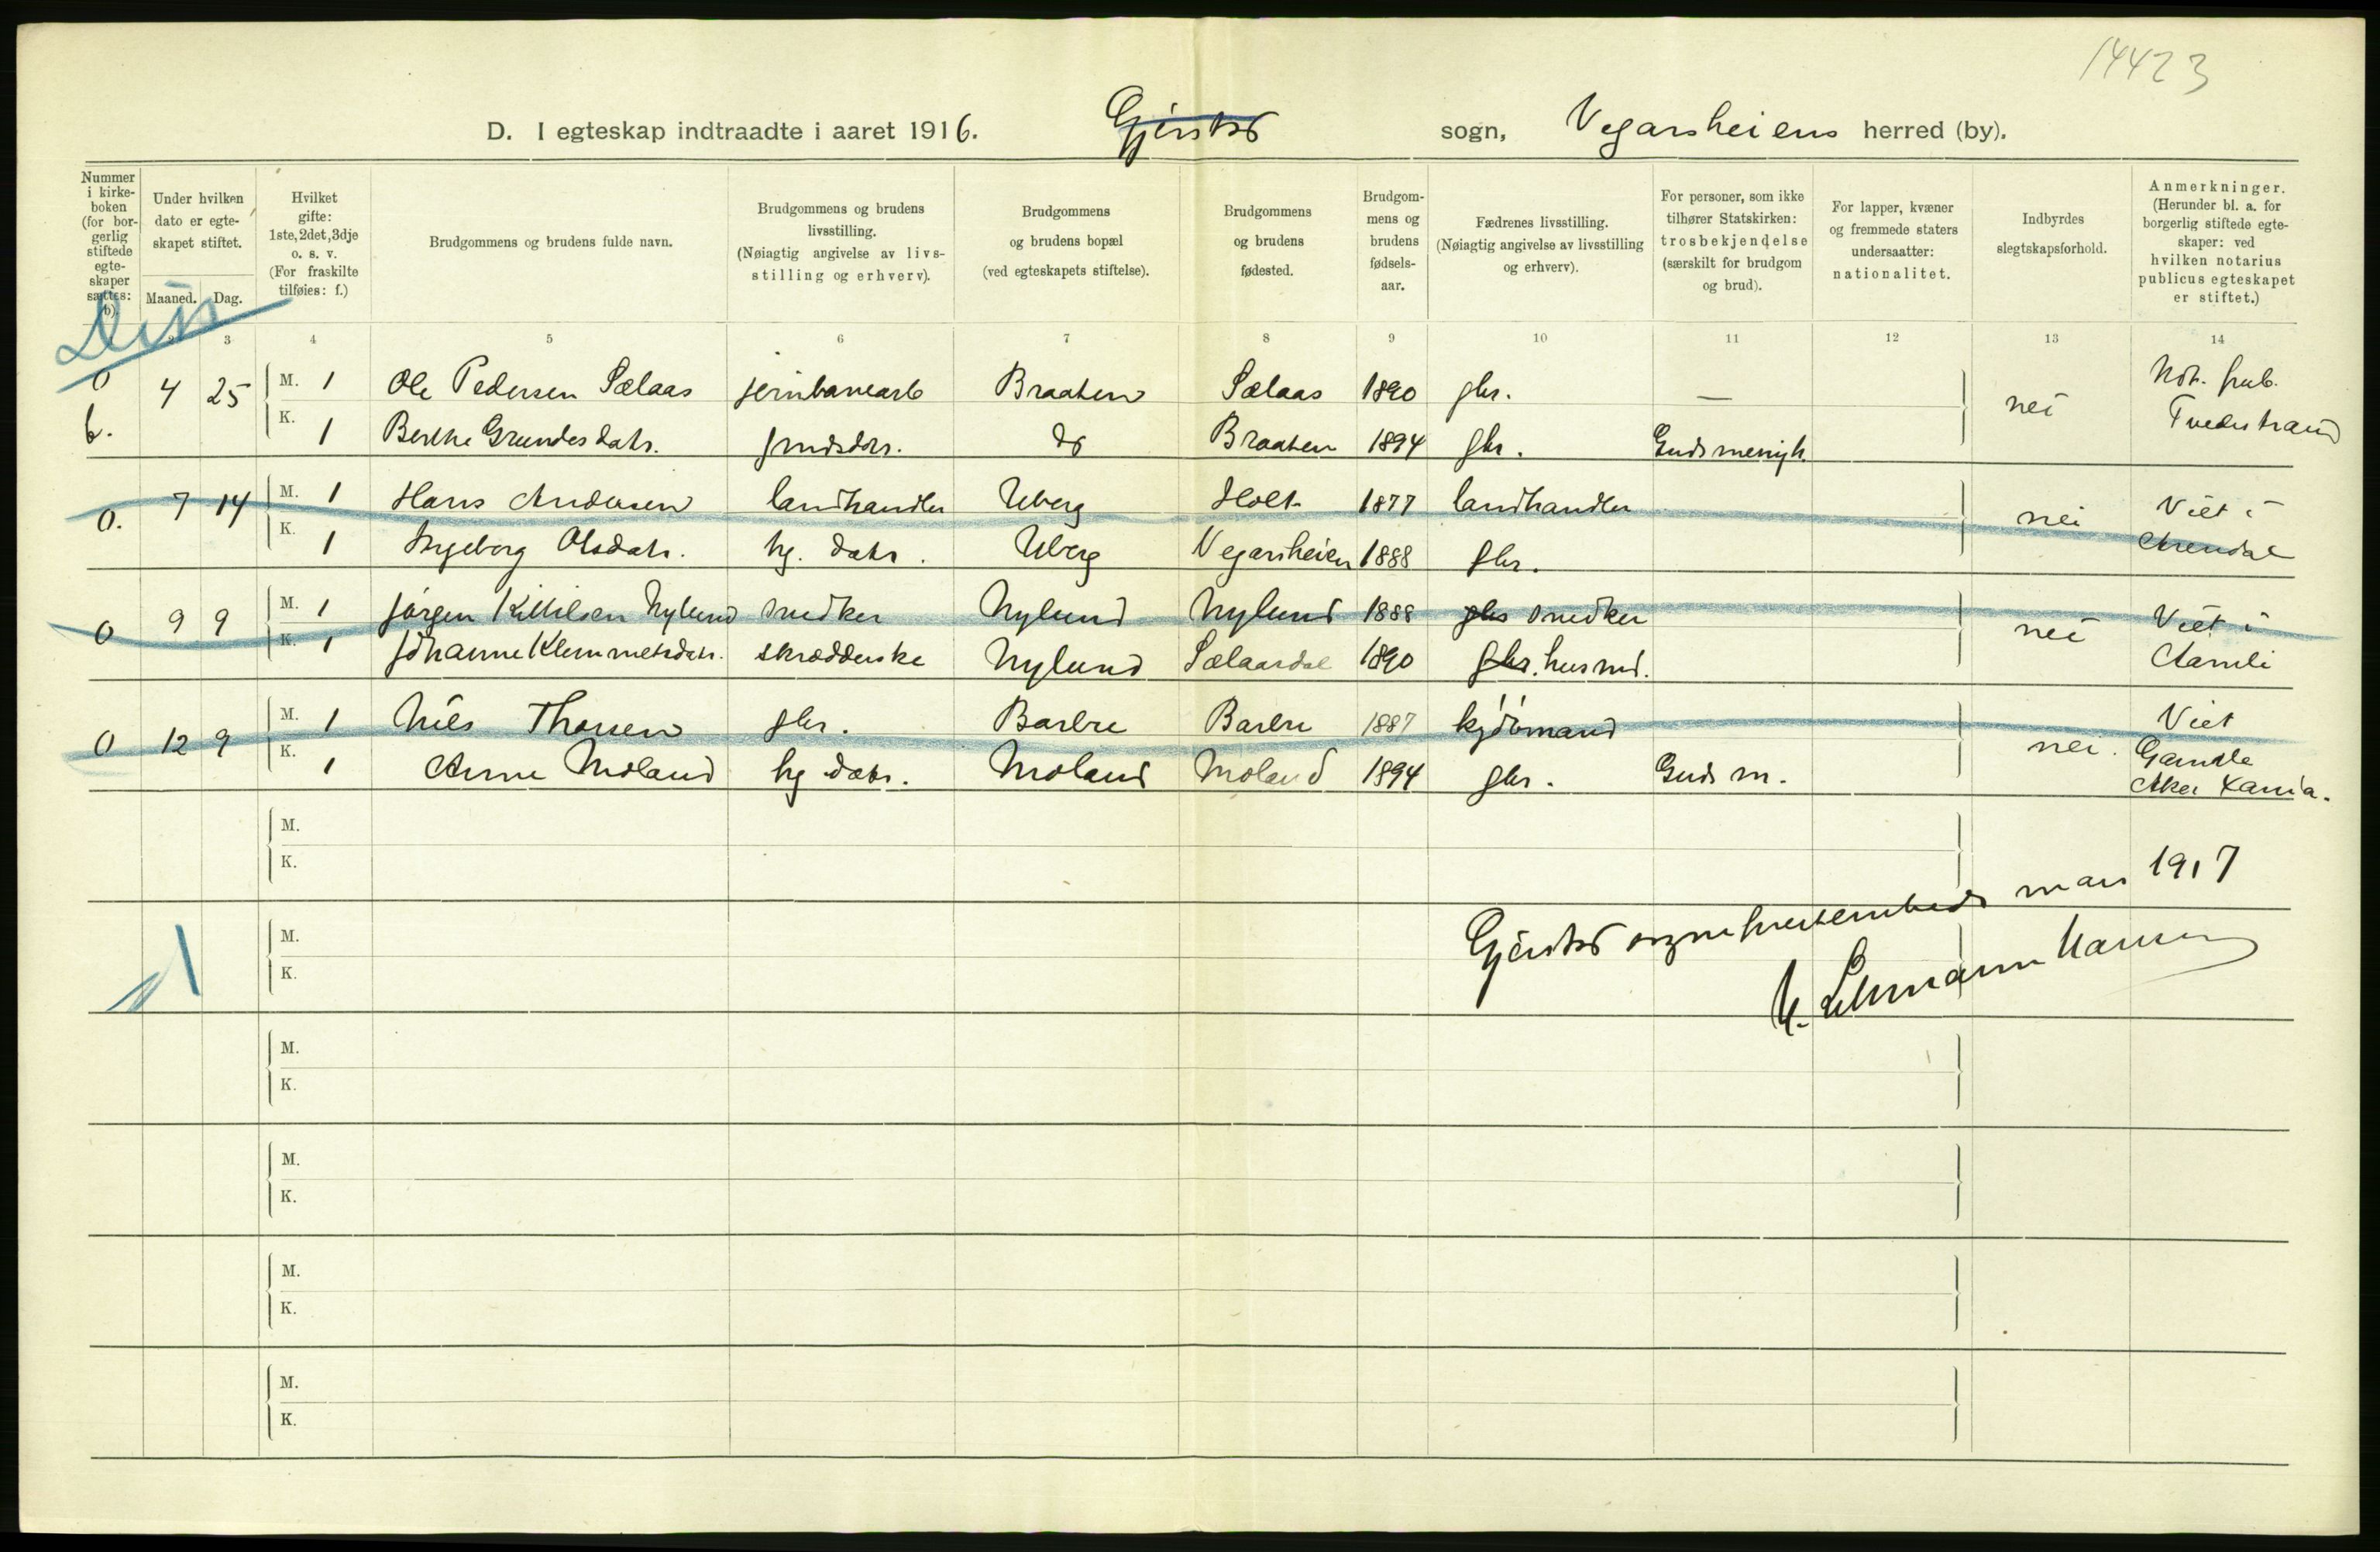 14423
D. I egteskap indtraadte i aaret 1916. Gjerstad sogn, Vegarsheiens herred (by).
Nummer i kirkeboken (for borgerlig stiftede egteskaper sættes: b).
Under hvilken dato er egteskapet stiftet.
Maaned. Dag.
Hvilket gifte: 1ste, 2det, 3dje o. s. v. (For fraskilte tilføies: f.)
Brudgommens og brudens fulde navn.
Brudgommens og brudens livsstilling. (Nøiagtig angivelse av livsstilling og erhverv).
Brudgommens og brudens bopæl (ved egteskapets stiftelse).
Brudgommens og brudens fødested.
Brudgommens og brudens fødselsaar.
Fædrenes livsstilling. (Nøiagtig angivelse av livsstilling og erhverv).
For personer, som ikke tilhører Statskirken: trosbekjendelse (særskilt for brudgom og brud).
For lapper, kvæner og fremmede staters undersaatter: nationalitet.
Indbyrdes slegtskapsforhold.
Anmerkninger. (Herunder bl. a. for borgerlig stiftede egteskaper: ved hvilken notarius publicus egteskapet er stiftet.)
2 3 4 5 6 7 8 9 10 11 12 13 14
0 4 25 M. 1 Ole Pedersen Sælaas jernbanearb Braaten Sælaas 1890 gbr. — nei Not. pub.
b. K. 1 Berthe Grundesdatr. do Braaten 1894 gbr. Guds menigh. Tvedestrand
0. 7 14 M. 1 Hans Andersen landhandler Uberg Holt 1877 landhandler nei Viet i
K. 1 Ingeborg Olsdatr. hg. datr. Uberg Vegarsheien 1888 gbr. Arendal
0 9 9 M. 1 Jørgen Kittilsen Nylund snedker Nylund Nylund 1888 gbr snedker nei Viet i
K. 1 Johanne Klemmetsdatr. skrædderske Nylund Sælaasdal 1890 gbr. husmd. Aamli
0 12 9 M. 1 Nils Thorsen gbr. Barbre Barbre 1887 kjøbmand nei. Viet
K. 1 Anne Moland hg datr. Moland Moland 1894 gbr. Guds m. Gamle
Aker Xania.
M.
K.
Gjerstad sogneprestembede mars 1917
Lehmann Hansen
M.
K.
M.
K.
M.
K.
M.
K.
M.
K.